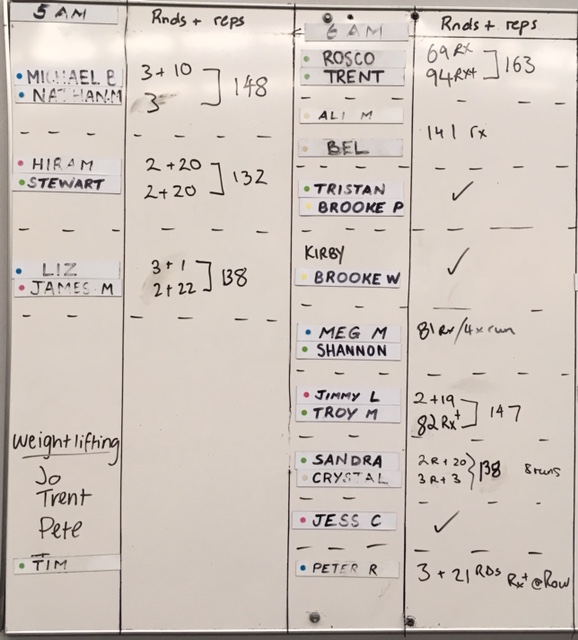 5 AM Rnds + reps
MICHAEL B 3 + 10
NATHAN M 3
148
HIRAM 2 + 20
STEWART 2 + 20
132
LIZ 3 + 1
JAMES M 2 + 22
138
Weightlifting
Jo
Trent
Pete
TIM
6 AM Rnds + reps
ROSCO 69 Rx
TRENT 94 Rx+
163
ALI M
BEL 141 rx
TRISTAN ✓
BROOKE P
KIRBY ✓
BROOKE W
MEG M 81 Rx/4x run
SHANNON
JIMMY L 2 + 19
TROY M 82 Rx+
147
SANDRA 2 R + 20
CRYSTAL 3 R + 3
138 8 runs
JESS C ✓
PETER R 3 + 21 RDS Rx+ @ Row